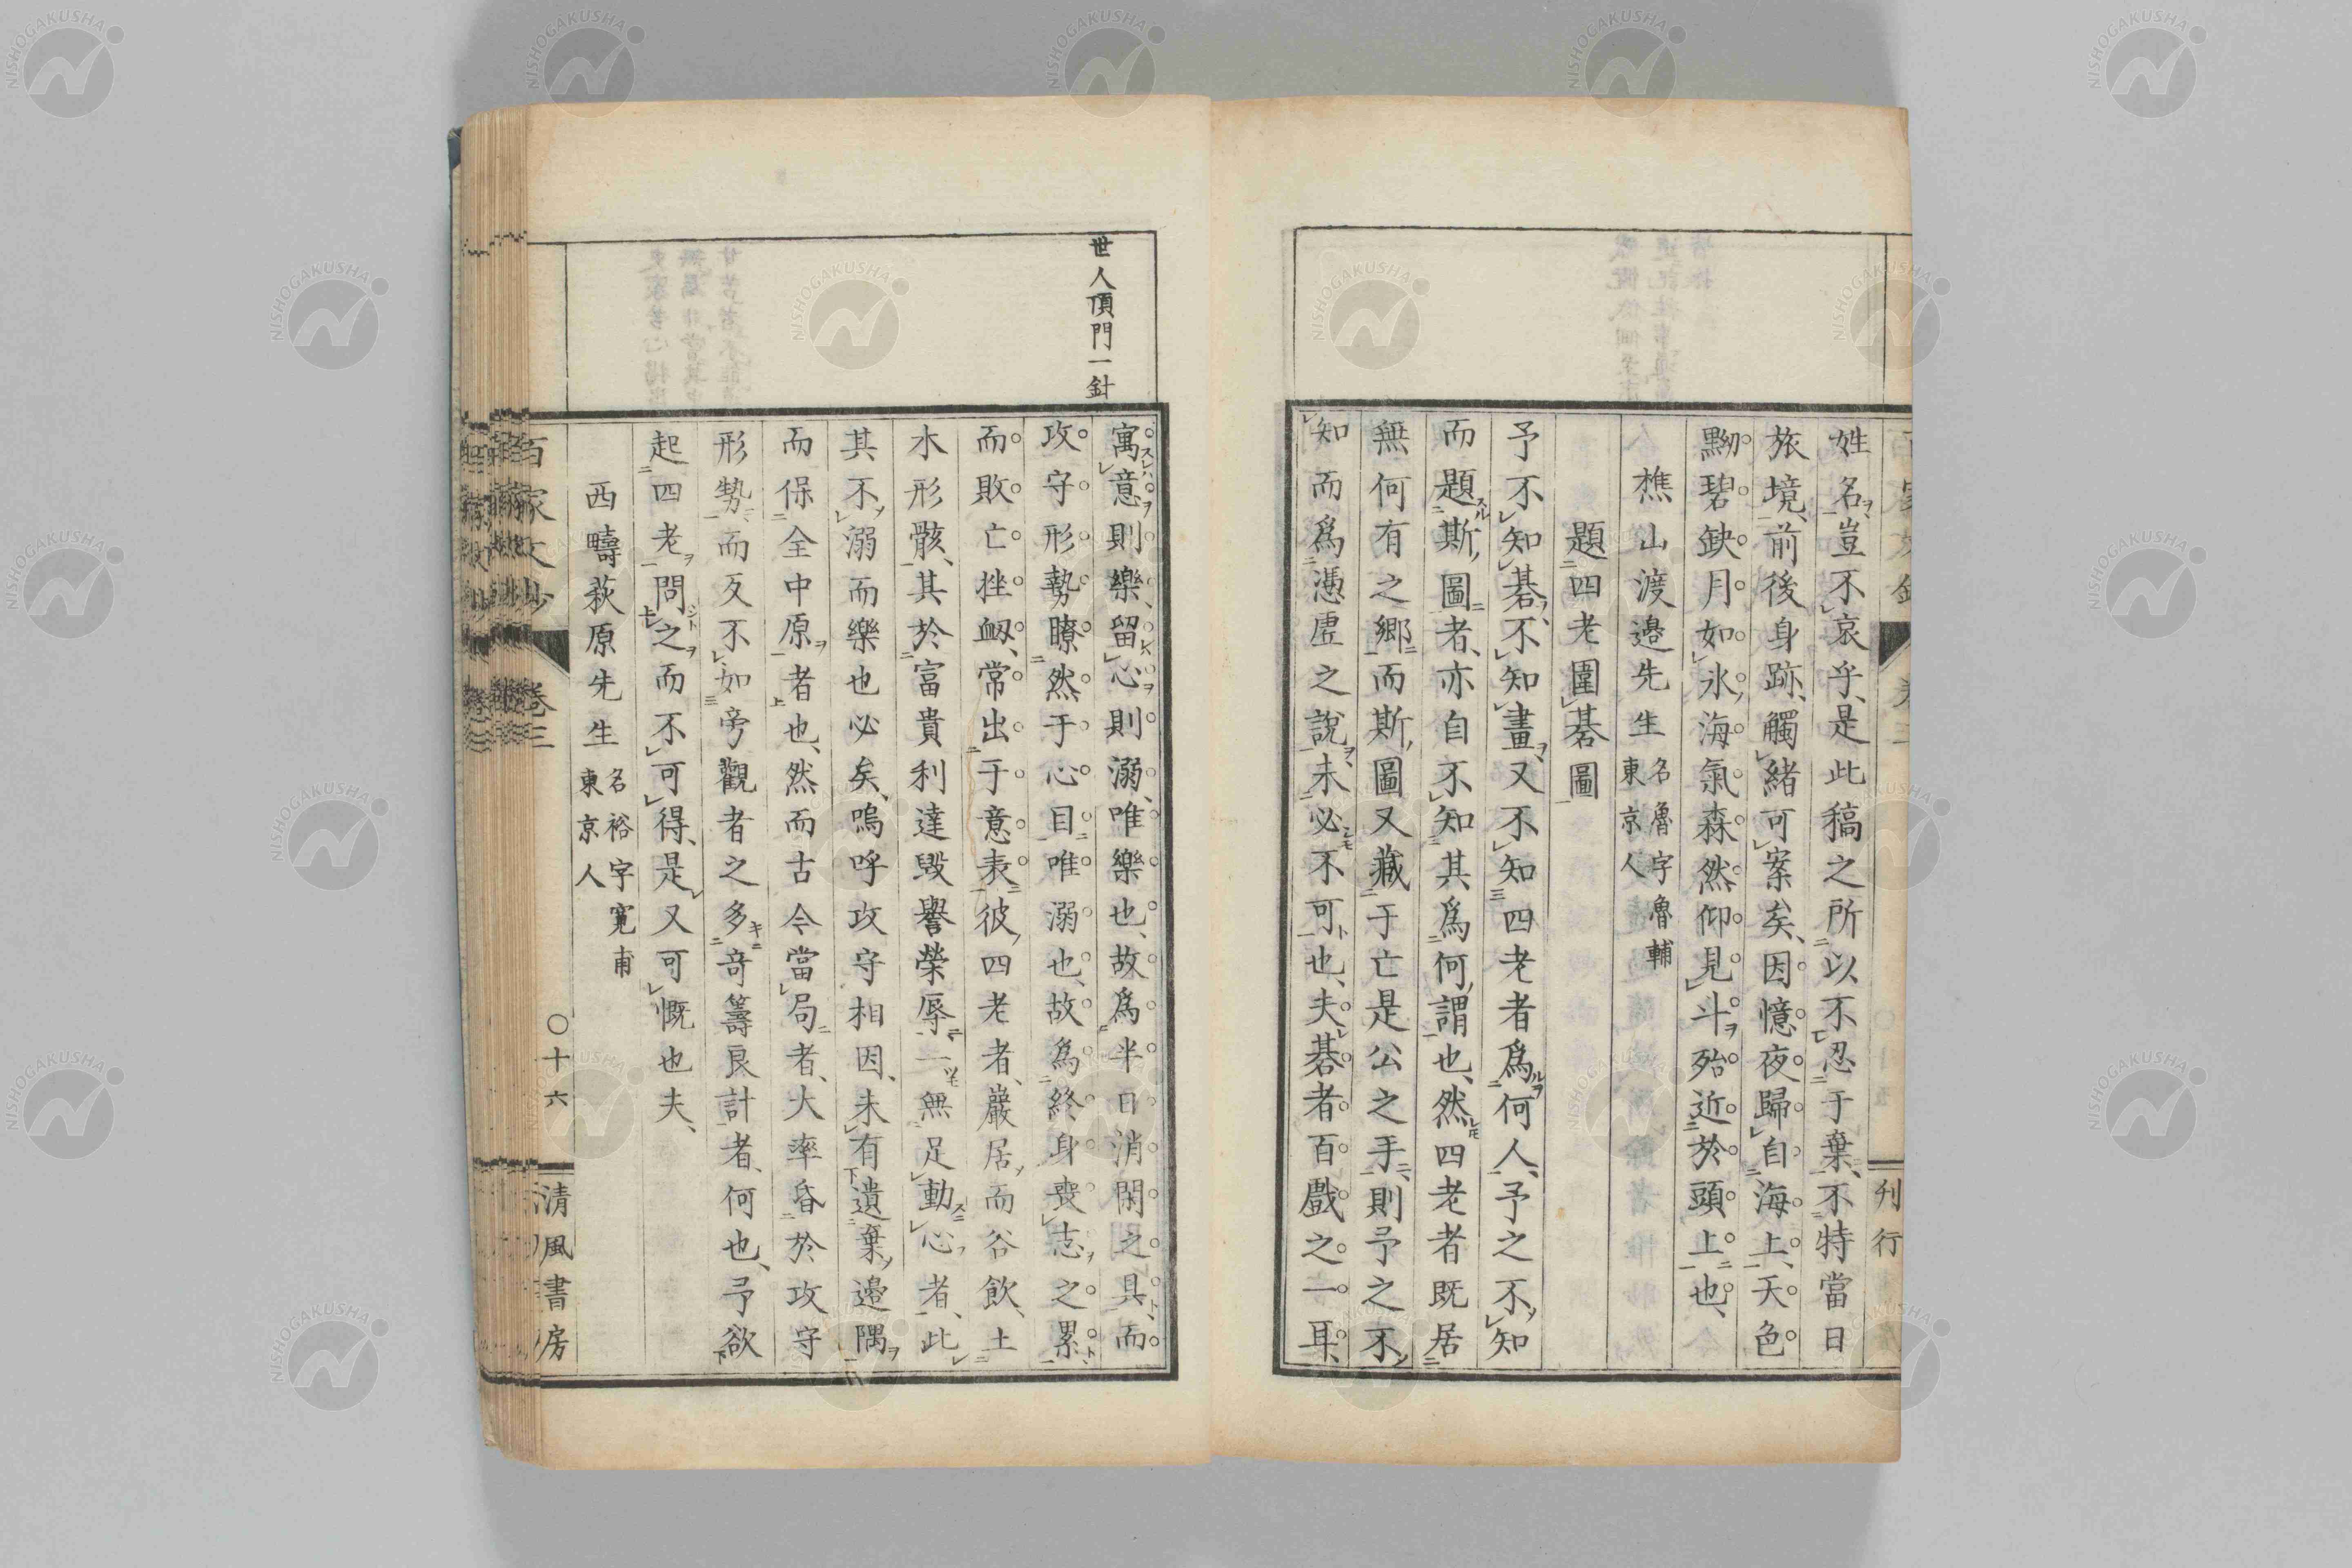 姓名、豈不哀乎、是此稿之所以不忍于棄、不特當日
旅境、前後身跡、觸緒可案矣、因憶夜歸自海上、天色
黝碧、缺月如氷、海氣森然、仰見斗殆近於頭上也、
樵山渡邉先生 名魯字魯輔
東京人
題四老圍碁圖
予不知碁、不知畫、又不知四老者爲何人、予之不知
而題斯圖者、亦自不知其爲何謂也、然四老者既居
無何有之鄉、而斯圖又藏于亡是公之手、則予之不
知而爲憑虛之說、未必不可也、夫碁者百戲之一耳、
刋行
世人頂門一針
寓意則樂、留心則溺、唯樂也、故爲半日消閑之具、而
攻守形勢瞭然于心目、唯溺也、故爲終身喪志之累、
而敗亡挫衂、常出于意表、彼四老者、巖居而谷飲、土
木形骸、其於富貴利達毀譽榮辱、一無足動心者、此
其不溺而樂也必矣、嗚呼攻守相因、未有遺棄邉隅
而保全中原者也、然而古今當局者、大率昏於攻守
形勢、而反不如旁觀者之多奇籌良計者、何也、予欲
起四老問之、而不可得、是又可慨也夫、
西疇萩原先生 名裕字寬甫
東京人
百家文抄 卷三 〇十六 清風書房